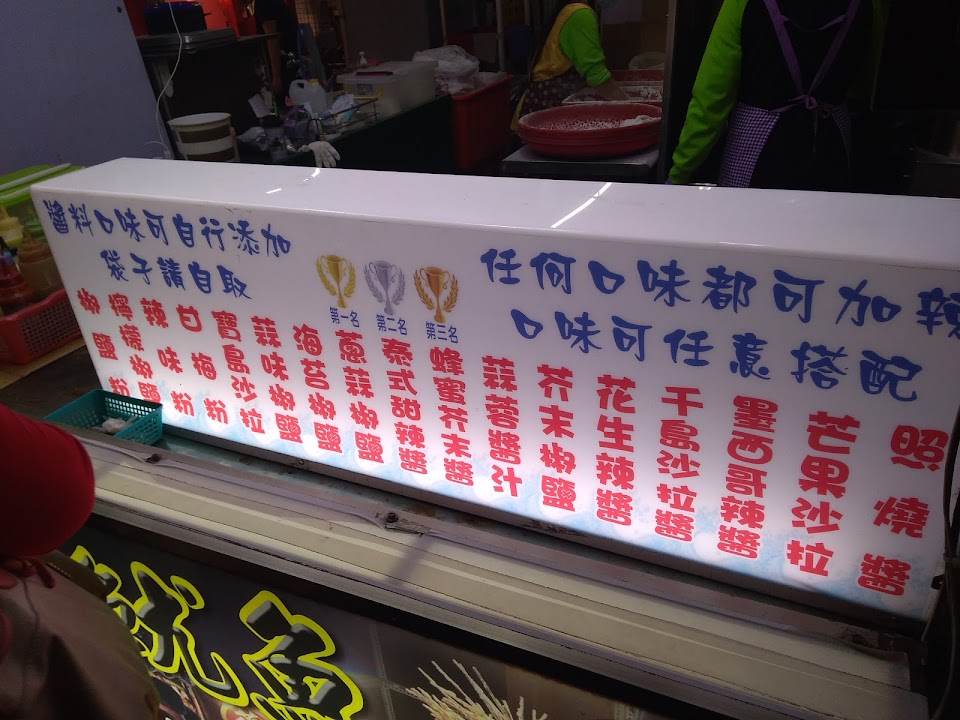 醬料口味可自行添加
袋子請自取
第一名
第二名
第三名
任何口味都可加辣
口味可任意搭配
椒鹽粉
檸檬椒鹽
辣味粉
甘梅粉
寶島沙拉
蒜味椒鹽
海苔椒鹽
蔥蒜椒鹽
泰式甜辣醬
蜂蜜芥末醬
蒜蓉醬汁
芥末椒鹽
花生辣醬
千島沙拉醬
墨西哥辣醬
芒果沙拉
照燒醬